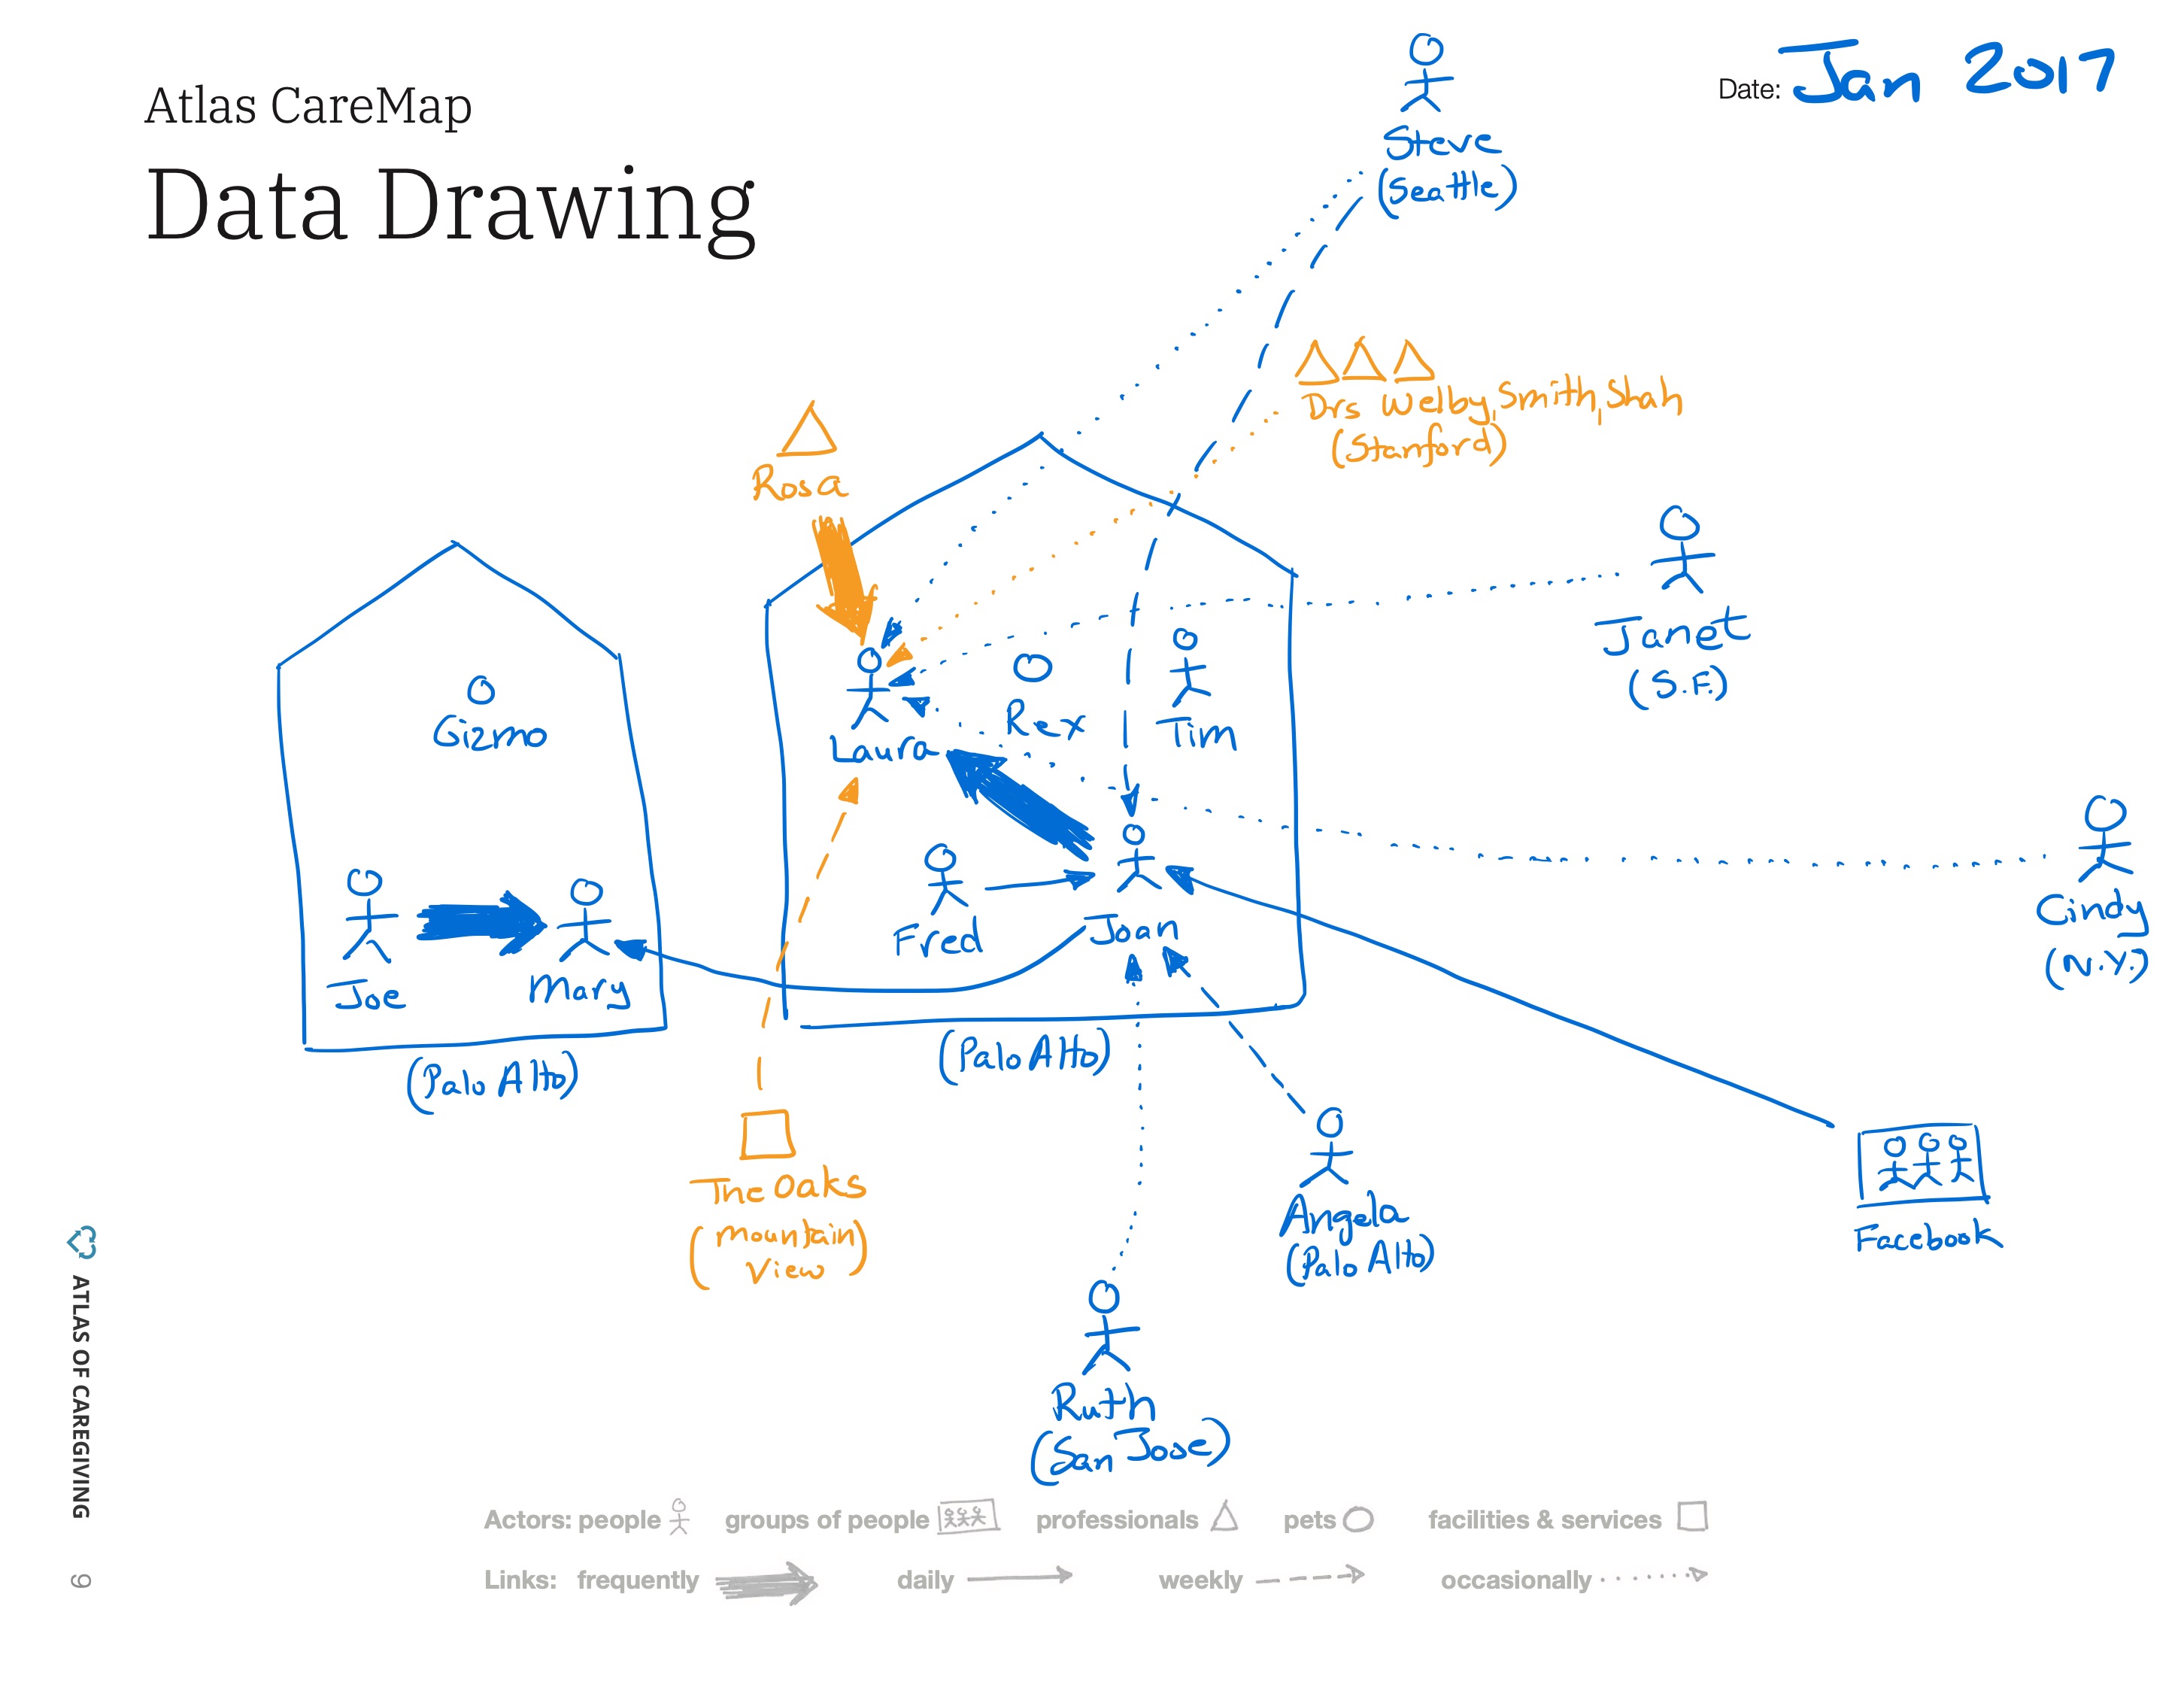 Atlas CareMap
Data Drawing
Date: Jan 2017
Steve
(Seattle)
Drs Welby, Smith, Shah
(Stanford)
Rosa
Janet
(S.F.)
Gizmo
Laura
Rex
Tim
Joe
Mary
Fred
Joan
Cindy
(N.Y.)
(Palo Alto)
(Palo Alto)
The Oaks
(Mountain
View)
Angela
(Palo Alto)
Facebook
Ruth
(San Jose)
Actors: people groups of people professionals pets facilities & services
Links: frequently daily weekly occasionally
ATLAS OF CAREGIVING
9